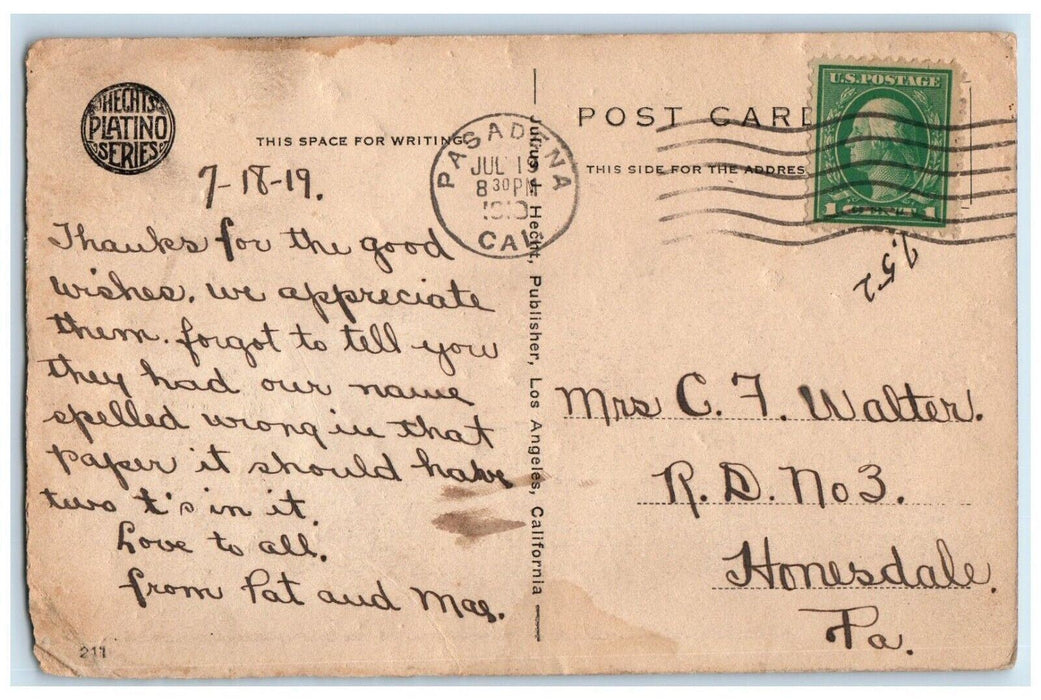 HECHTS
PLATINO
SERIES
THIS SPACE FOR WRITING
7-18-19.
Thanks for the good
wishes. we appreciate
them. forgot to tell you
they had our name
spelled wrong in that
paper it should have
two t's in it.
Love to all.
from Pat and Mae.
211
PASADENA
JUL 19
8 30 PM
1919
CAL
Julius J. Hecht, Publisher, Los Angeles, California
POST CARD
THIS SIDE FOR THE ADDRES
U.S. POSTAGE
1 CENT 1
752
Mrs C. F. Walter.
R. D. No 3.
Honesdale.
Pa.